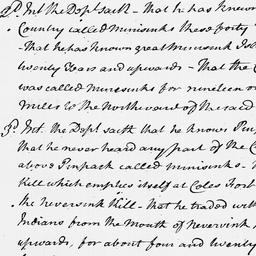 2d. Int. the Dept. saith – that he has known
Country called Minisinks these forty
– That he has known great Minisink Isl
twenty Years and upwards – That the C
was called Minisinks for nineteen o
Miles to the Northeward of the said
3d. Int. the Dept. saith that he knows Pin
that he never heard any part of the C
above Pinpack called Minisinks –
Kill which empties itself at Coles Fort
the Neversink Kill – that he traded with
Indians from the Mouth of Neversink
upwards, for about four and twenty